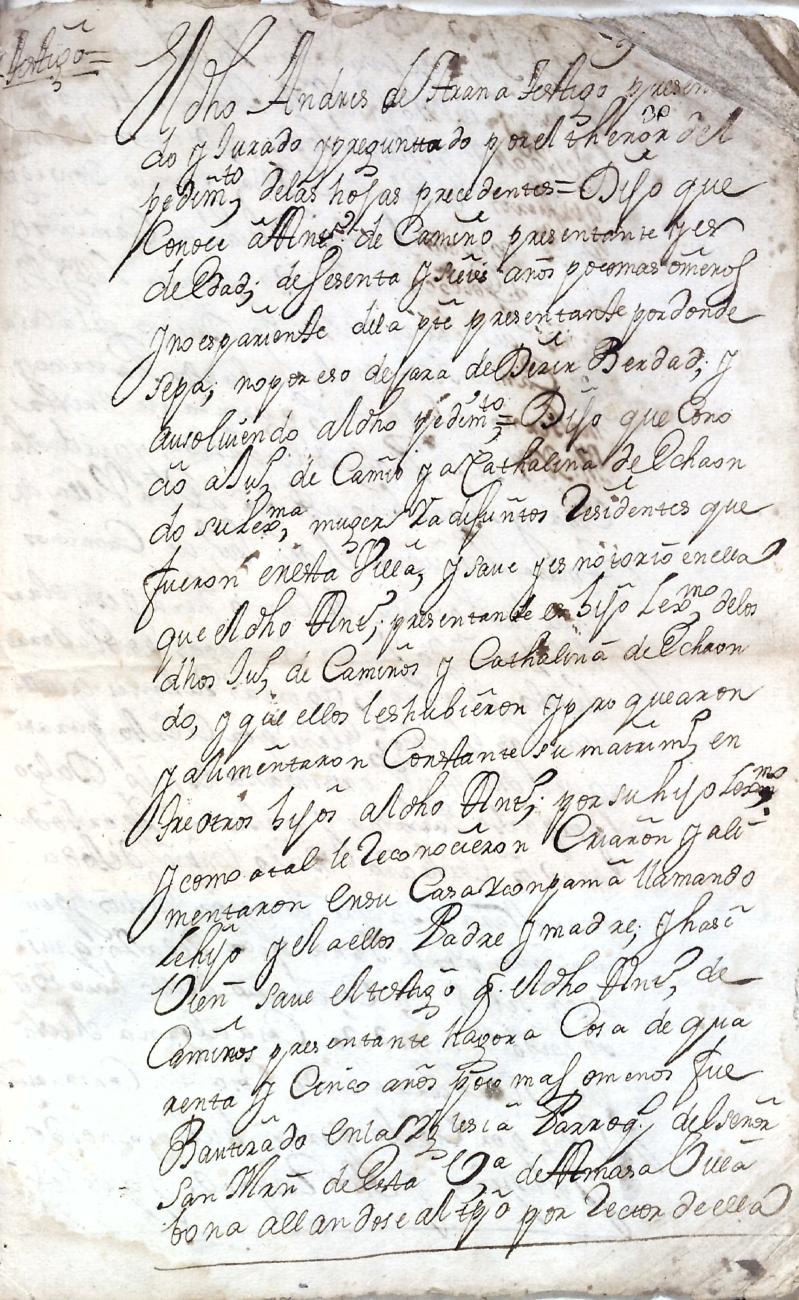 testigo=
El dho Andres de Arana testigo presen
do y Jurado y preguntado por el thenor del
pedimto, delas hojas precedentes= Dijo que
Conoce a Anto. de Camino presentante y es
de edad, de sesenta y seis años poco mas o menos
y no es pariente dela pte presentante por donde
sepa, no por eso dejara de Decir Berdad, y
ausolviendo al dho pedimto= Dijo que Cono
cio a Jun, de Camio y a Cathalina de Echaon
do su lexma, muger ya difuntos Residentes que
fueron en esta Villa, y save y es notorio en ella
que el dho Anto, presentante es hijo Lexmo delos
dhos Jun, de Caminos y Cathalina de Echaon
do, y que ellos les hubieron y pro quearon
y alimentaron Constante su matrimo, en
tre otros hijos al dho Anto, por su hijo Lexmo,
y como atal le Reconocieron Criaron y ali
mentaron en su Casa y conpama llamando
le hijo y el a ellos Padre y madre, y hasi
Vien save el testigo q. el dho Anto, de
Caminos presentante hagora Cosa de qua
renta y Cinco años poco mas o menos fue
Bautizado en la Yglesia Parroq. del señor
San Mrn de esta Va de Amasa Villa
bona allandose al tpo por Rector de ella